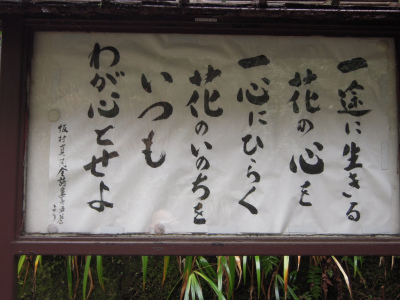 一途に生きる
花の心を
一心にひらく
花のいのちを
いつも
わが心とせよ
坂村真民
より